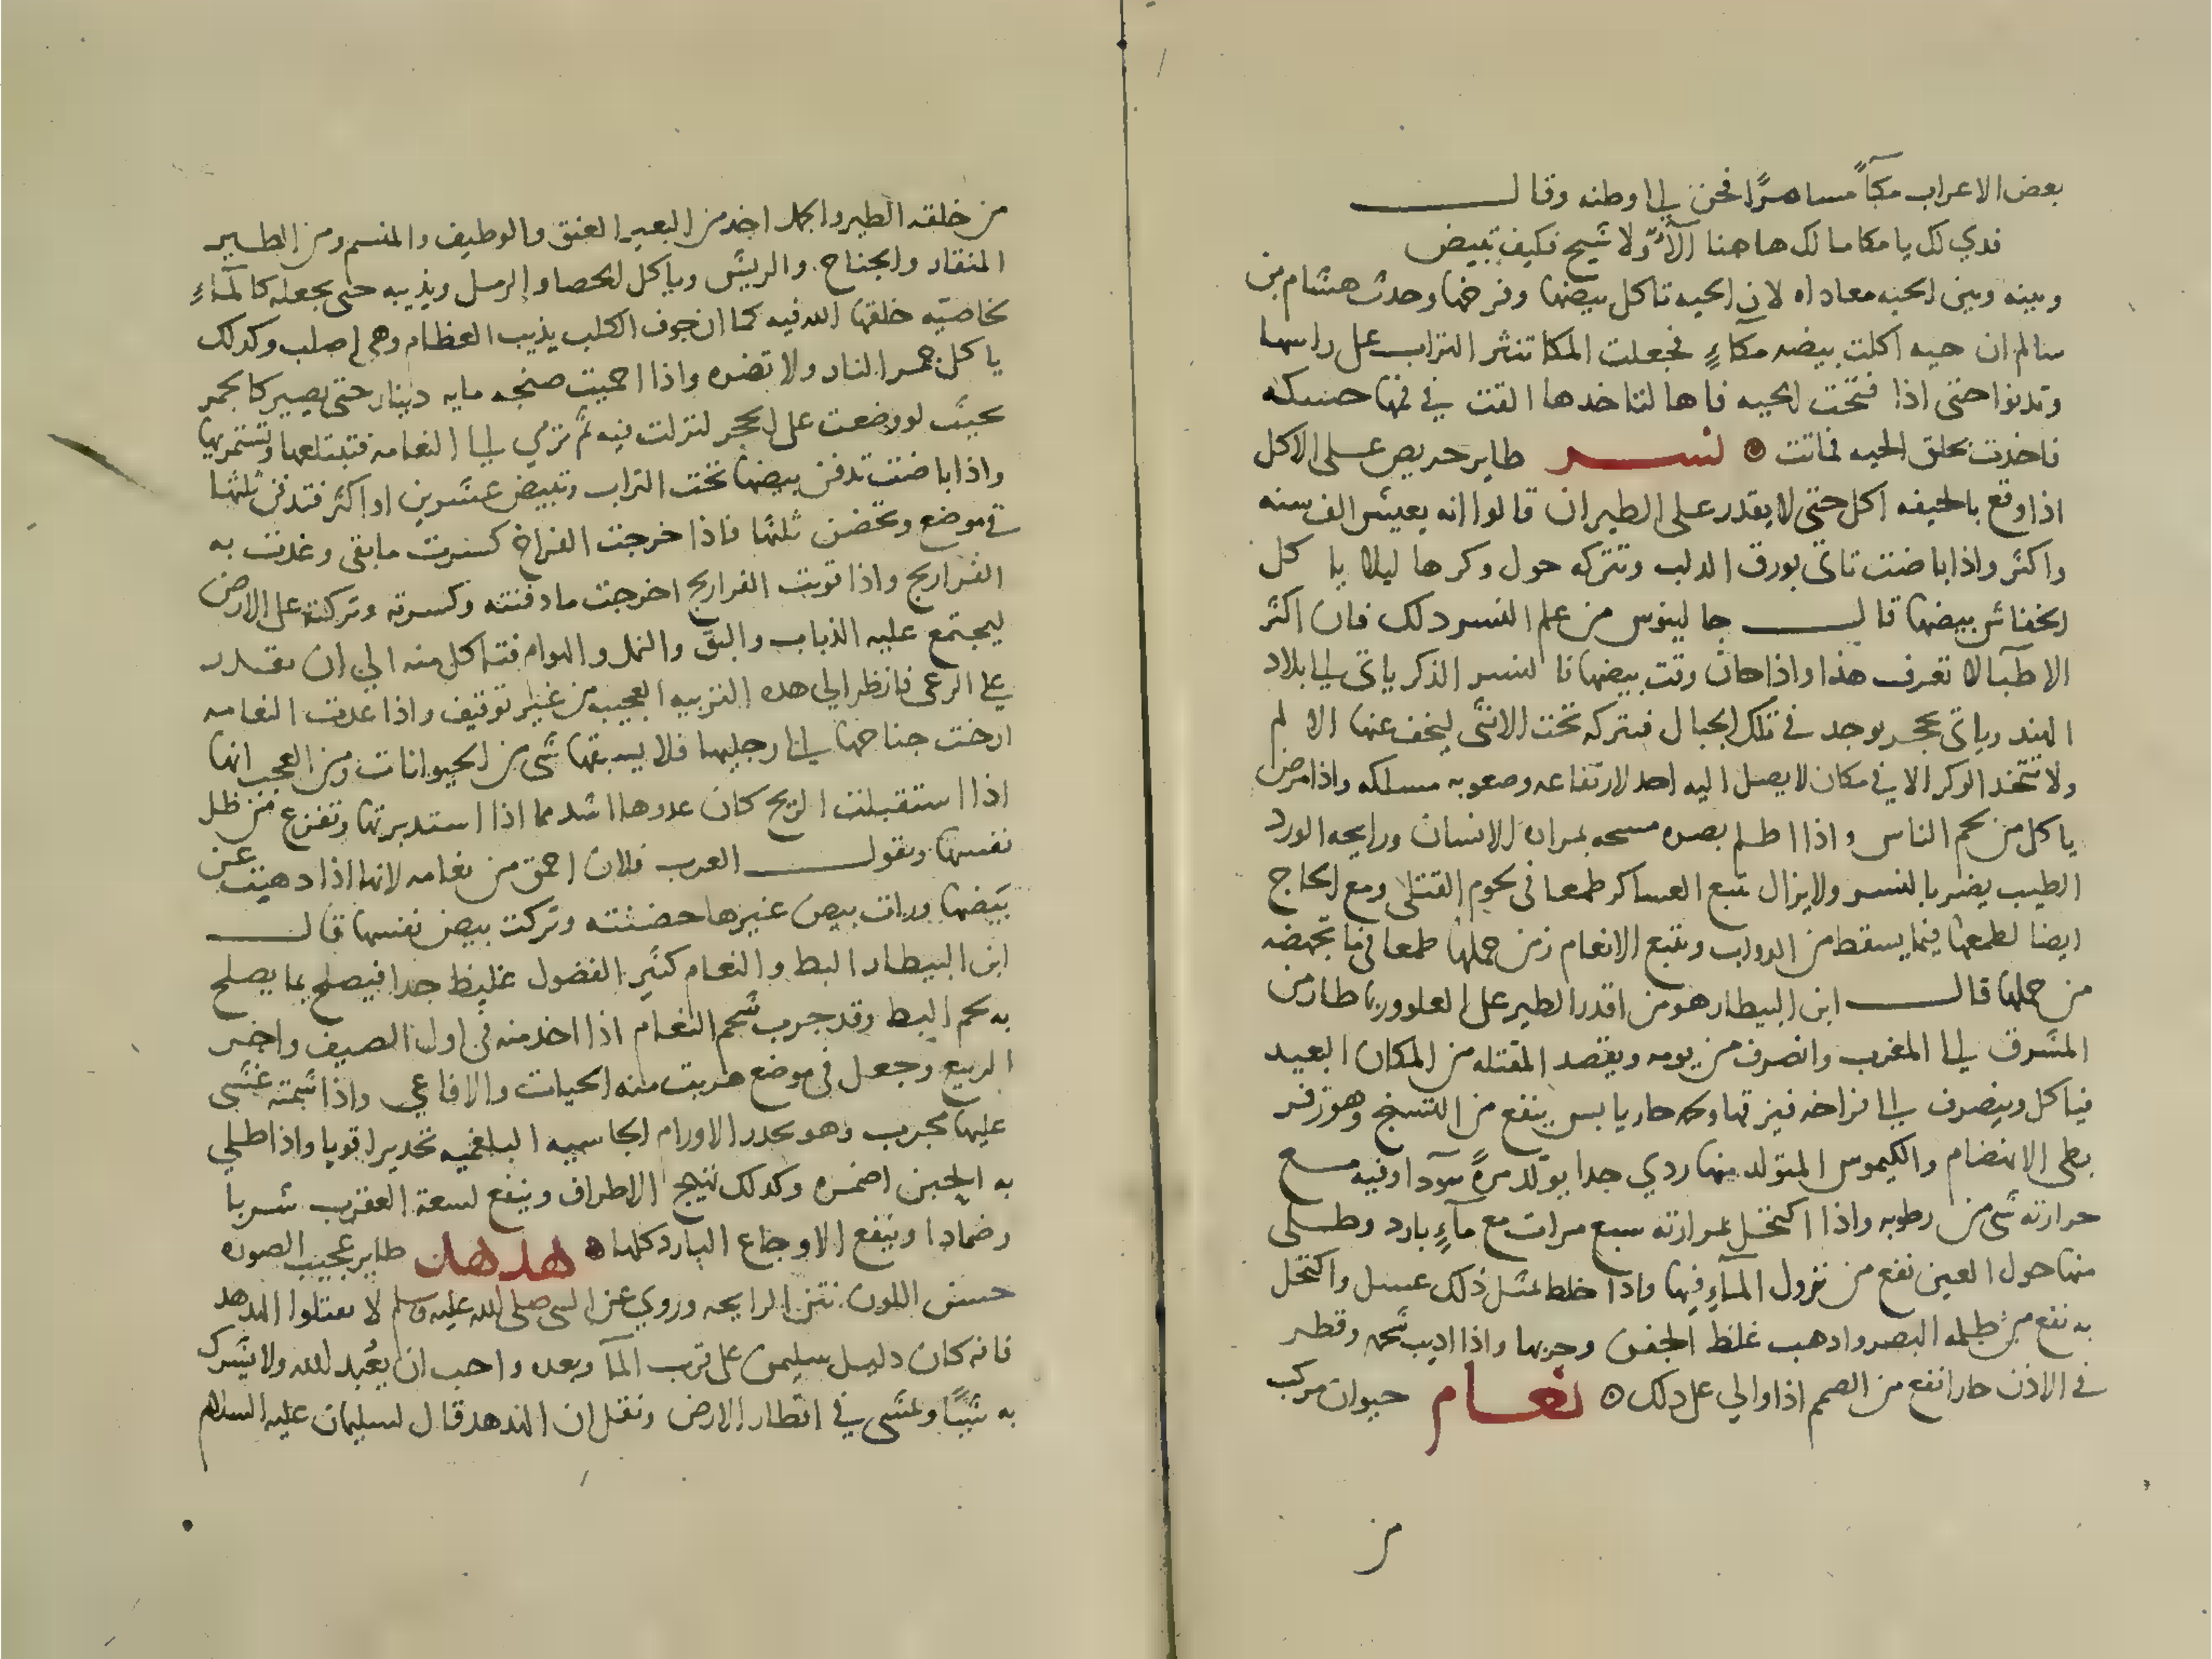 بعض الاعراب مكآً مسامرًا فحن الى اوطنه وقال
ندي لك يا مكا مالك هاهنا الآء ولا شيح فكيف تبيض
وبينه وبين الحيه معاداه لان الحيه تاكل بيضها وفرخها وحدث هشام بن
سالم ان حيه اكلت بيضه مكآءٍ فجعلت المكا تنثر التراب على راسها
وتدنوا حتى اذا فتحت الحيه فاها لتاخدها القت في فمها حسكه
فاخدت بحلق الحيه فماتت نسر طاير حريص على الاكل
اذا وقع بالجيفه اكل حتى لا يقدر على الطيران قالوا انه يعيش الف سنه
واكثر واذا باضت تاتى بورق الدلب وتتركه حول وكرها ليلا ياكل
الخفاش بيضها قال جالينوس من علم النسر دلك فان اكثر
الاطبآ لا تعرف هذا واذا حان وقت بيضها فالنسر الذكر ياتى الى بلاد
الهند وياتى بحجر يوجد في تلك الجبال فيتركه تحت الانثى ليخف عنها الالم
ولا تتخد الوكر الا في مكان لا يصل اليه احد لارتفاعه وصعوبه مسلكه واذا مرض
ياكل من لحم الناس واذا اظلم بصره مسحه بمراره الانسان ورايحه الورد
الطيب يضر بالنسر ولا يزال يتبع العساكر طمعا فى لحوم القتلى ومع الحاج
ايضا لطمعها فيما يسقط من الدواب وبتبع الانعام زمن حملها طمعا فى ما تجهضه
من حملها قال ابن البيطار هو من اقدر الطير على العلو وربما طار من
المشرق الى المغرب وانصرف من يومه ويقصد المقتله من المكان البعيد
فياكل وينصرف الى افراخه فيزقها ولحمه حار يابس ينفع من التشنج وهو زفر
بطى الانهضام والكيموس المتولد منها ردي جدا يولد مرةً سودآ وفيه مع
حرارته شى من رطوبه واذا اكتحل بمرارته سبع مرات مع مآءٍ بارد وطلى
منها حول العين نفع من نزول المآء فيها واذا خلط بمثل ذلك عسل واكتحل
به نفع من ظلمه البصر واذهب غلظ الجفن وجربها واذا اديب شحمه وقطر
في الاذن حارا نفع من الصمم اذا والي على دلك نعام حيوان مركب
من
من خلقه الطير والجمل اخذ من البعير العنق والوظيف والمنسم ومن الطير
المنقار والجناح والريش وياكل الحصا والرمل ويذيبه حتى يجعله كالمآءِ
بخاصيه خلقها الله فيه كما ان جوف الكلب يذيب العظام وهى اصلب وكدلك
ياكل جمر النار ولا تضره واذا احميت صنجه مايه دينار حتى يصير كالجمر
بحيث لو وضعت على الحجر لنزلت فيه ثم ترمي الى النعامه فتبتلعها وتستمريها
واذا باضت تدفن بيضها تحت التراب وتبيض عشرين او اكثر فتدفن ثلثها
في موضع وتحضن ثلثها فاذا خرجت الفراخ كسرت ما بقى وغدت به
الفراريج واذا قويت الفراريج اخرجت ما دفنته وكسرته وتركته على الارض
ليجتمع عليه الذباب والبق والنمل والهوام فتاكل منه الى ان تقدر
على الرعى فانظر الى هده التربيه العجيبه من غير توقيف واذا عدت النعامه
ارخت جناحها الى رجليها فلا يسبقها شى من الحيوانات ومن العجب انها
اذا استقبلت الريح كان عدوها اشد مما اذا استدبرتها وتفزع من ظل
نفسها وتقول العرب فلان احمق من نعامه لانها اذا دهيت عن
بيضها ورات بيض غيرها حضنته وتركت بيض نفسها قال
ابن البيطار البط والنعام كثير الفضول غليظ جدا فيصلح بما يصلح
به لحم البط وقد جرب شحم النعام اذا اخد منه فى اول الصيف واخر
الربيع وجعل فى موضع هربت منه الحيات والافاعي واذا شمته غشى
عليها مجرب وهو يحدر الاورام الجاسيه البلغميه تحديرا قويا واذا طلي
به الجبن اضمره وكدلك تهيج الاطراف وينفع لسعة العقرب شربا
وضمادا وينفع الاوجاع البارد كلها هدهد طاير عجيب الصوره
حسن اللون نتن الرايحه وروي عن النبى صلى الله عليه وسلم لا تقتلوا الهدهد
فانه كان دليل سليمن على قرب المآ وبعده واحب ان يعبد الله ولا يشرك
به شيئًا ويمشى في اقطار الارض ونقل ان الهدهد قال لسليمان عليه السلام